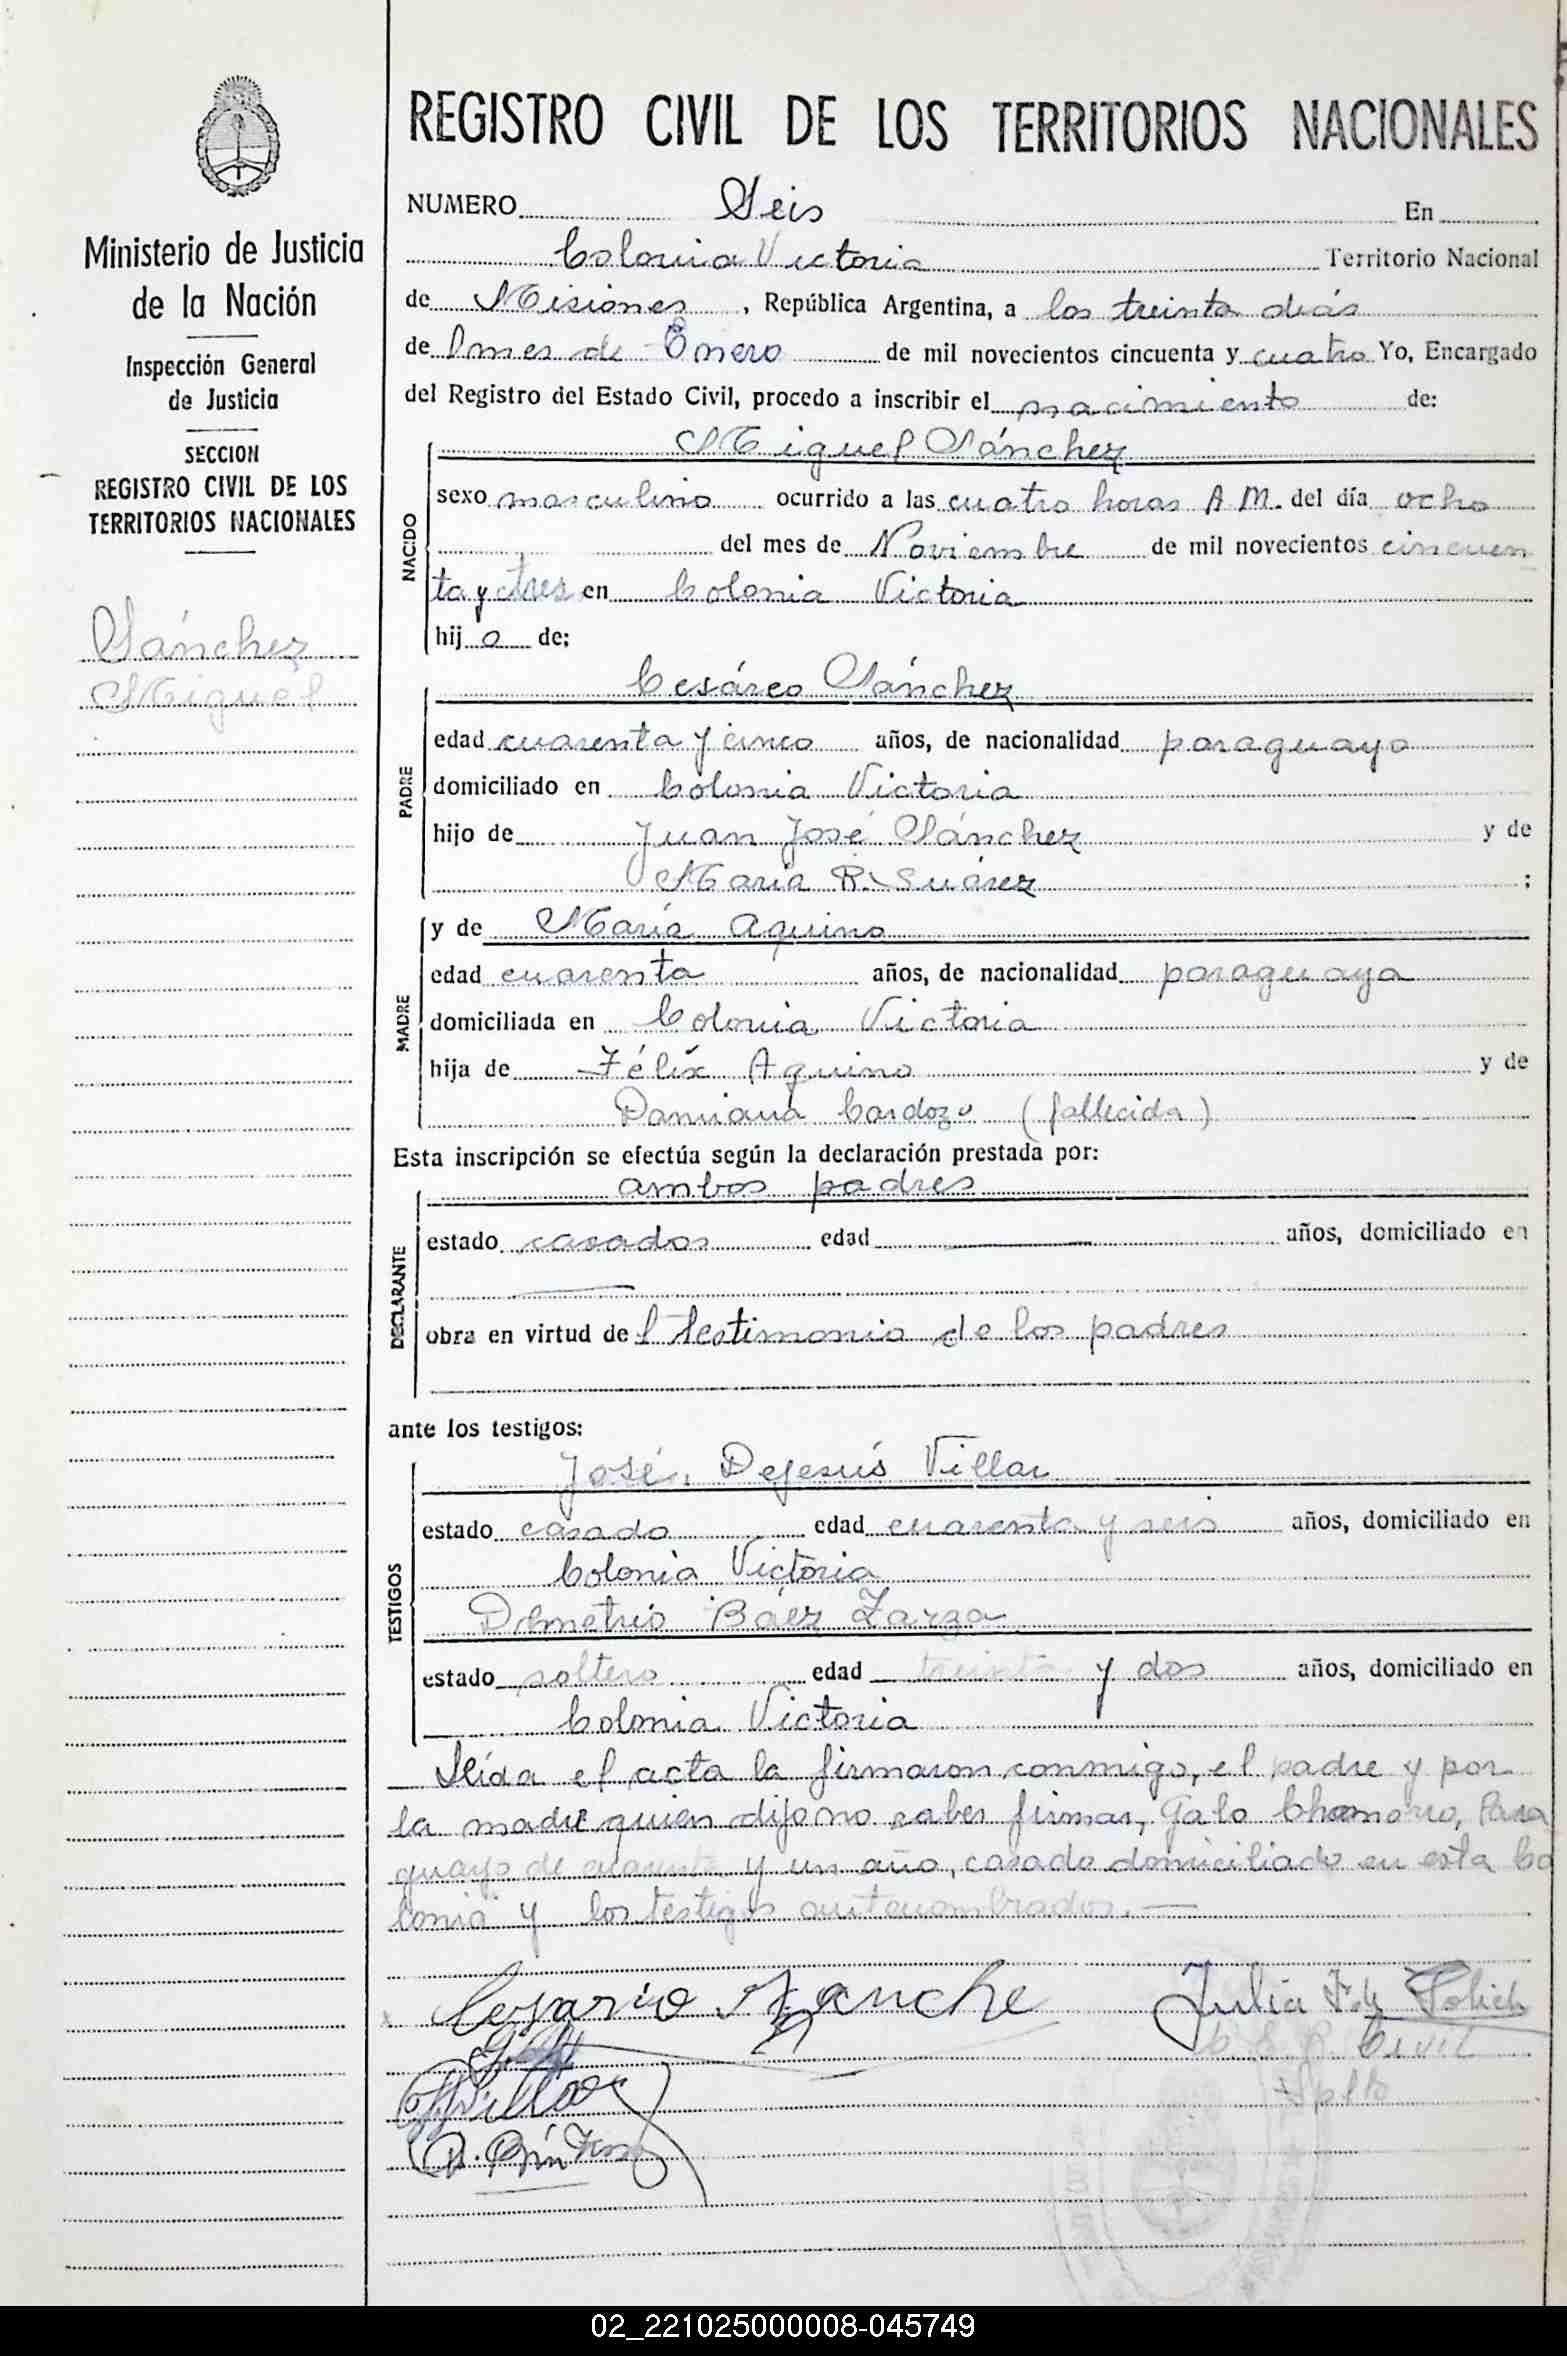 REGISTRO CIVIL DE LOS TERRITORIOS NACIONALES
NUMERO Seis En
Colonia Victoria Territorio Nacional
de Misiones, República Argentina, a los treinta días
de mes de Enero de mil novecientos cincuenta y cuatro Yo, Encargado
del Registro del Estado Civil, procedo a inscribir el nacimiento de:
NACIDO
Miguel Sánchez
sexo masculino ocurrido a las cuatro horas A M. del día ocho
del mes de Noviembre de mil novecientos cincuen
ta y tres en Colonia Victoria
hijo de;
PADRE
Cesáreo Sánchez
edad cuarenta y cinco años, de nacionalidad paraguayo
domiciliado en Colonia Victoria
hijo de Juan José Sánchez y de
María R. Suárez ;
MADRE
y de María Aquino
edad cuarenta años, de nacionalidad paraguaya
domiciliada en Colonia Victoria
hija de Félix Aquino y de
Damiana Cardozo (fallecida)
Esta inscripción se efectúa según la declaración prestada por:
DECLARANTE
ambos padres
estado casados edad — años, domiciliado en
—
obra en virtud del testimonio de los padres
ante los testigos:
TESTIGOS
José Dejesús Villar
estado casado edad cuarenta y seis años, domiciliado en
Colonia Victoria
Demetrio Báez Zarza
estado soltero edad treinta y dos años, domiciliado en
Colonia Victoria
Leída el acta la firmaron conmigo, el padre y por
la madre quien dijo no saber firmar, Galo Chamorro, Para
guayo de cuarenta y un año, casado domiciliado en esta Co
lonia y los testigos antenombrados. —
Cesario Sanche Julia F. de
E. R. Civil
Splte
Villar
Ministerio de Justicia
de la Nación
Inspección General
de Justicia
SECCION
REGISTRO CIVIL DE LOS
TERRITORIOS NACIONALES
Sánchez
Miguel
02_221025000008-045749